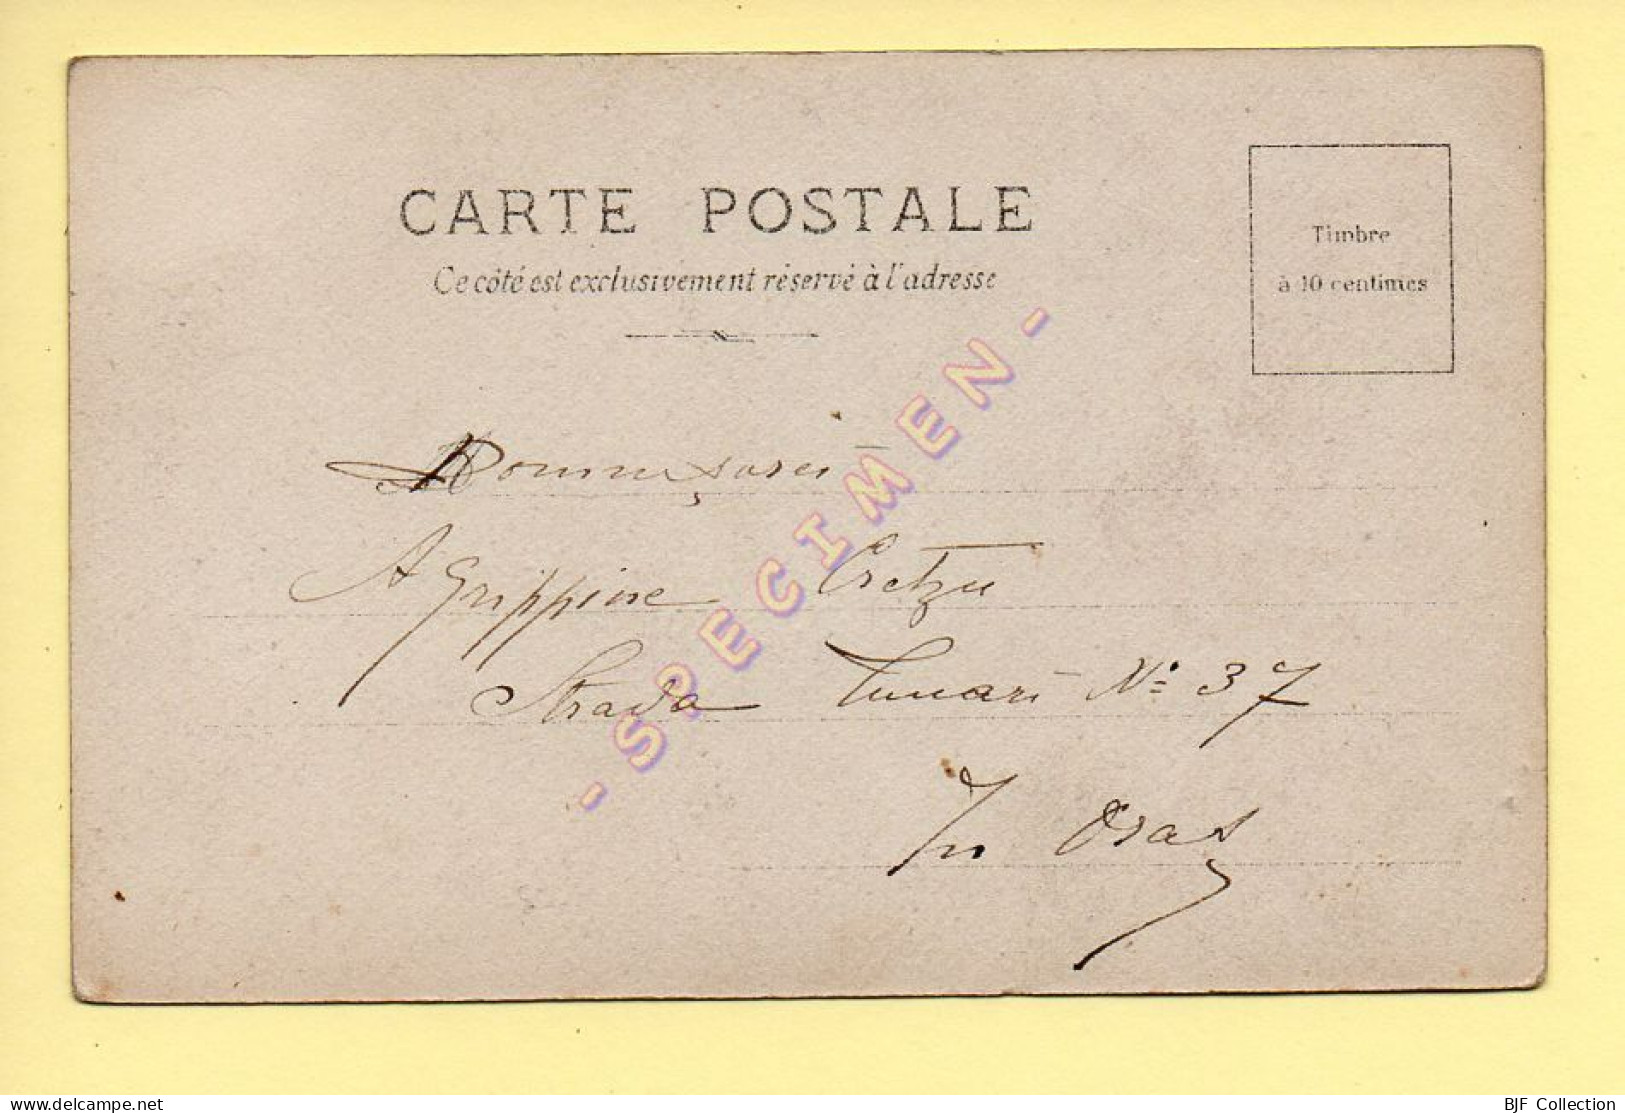 CARTE POSTALE
Ce côté est exclusivement réservé à l'adresse
Timbre
à 10 centimes
- SPECIMEN -
Agrippine Cretzu
Strada Lunari No. 37
In Oraș
BJF Collection